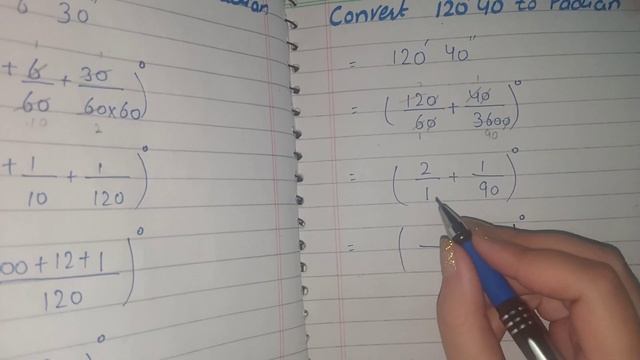 6 30"
+ 6/60 + 30/60x60)°
+ 1/10 + 1/120)°
00+12+1/120)°
Convert 120' 40" to radian
= 120' 40"
= (120/60 + 40/3600)°
= (2/1 + 1/90)°
= (